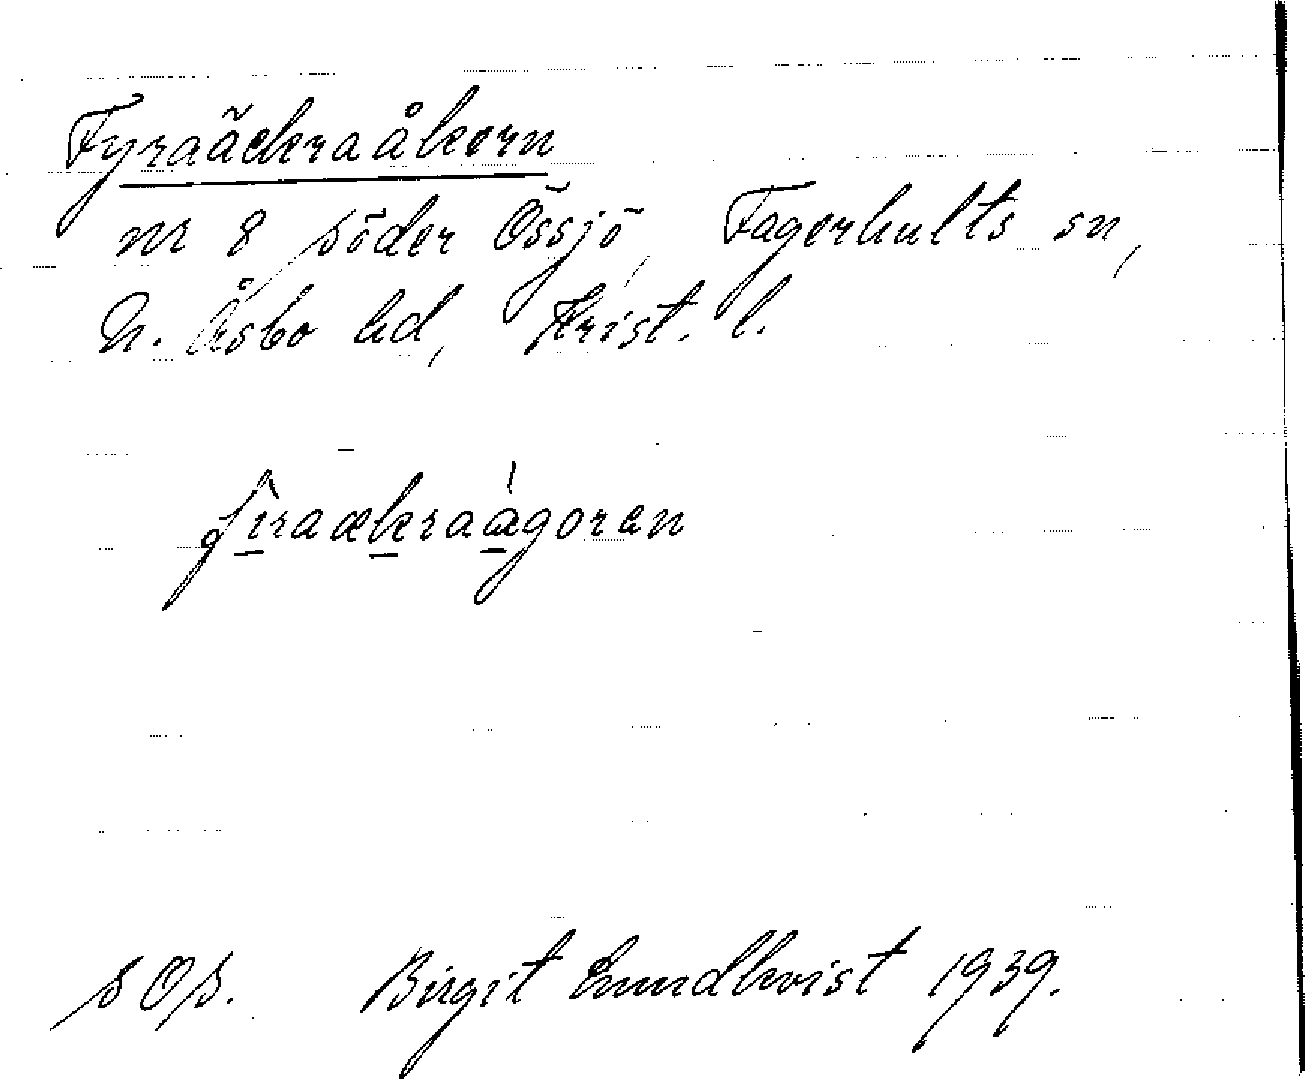 Fyraäckraåkorn
nr 8 Söder Össjö, Fagerhults sn,
N. Åsbo hd, Krist. l.
firaækraågoren
SOS. Birgit Lundkvist 1939.